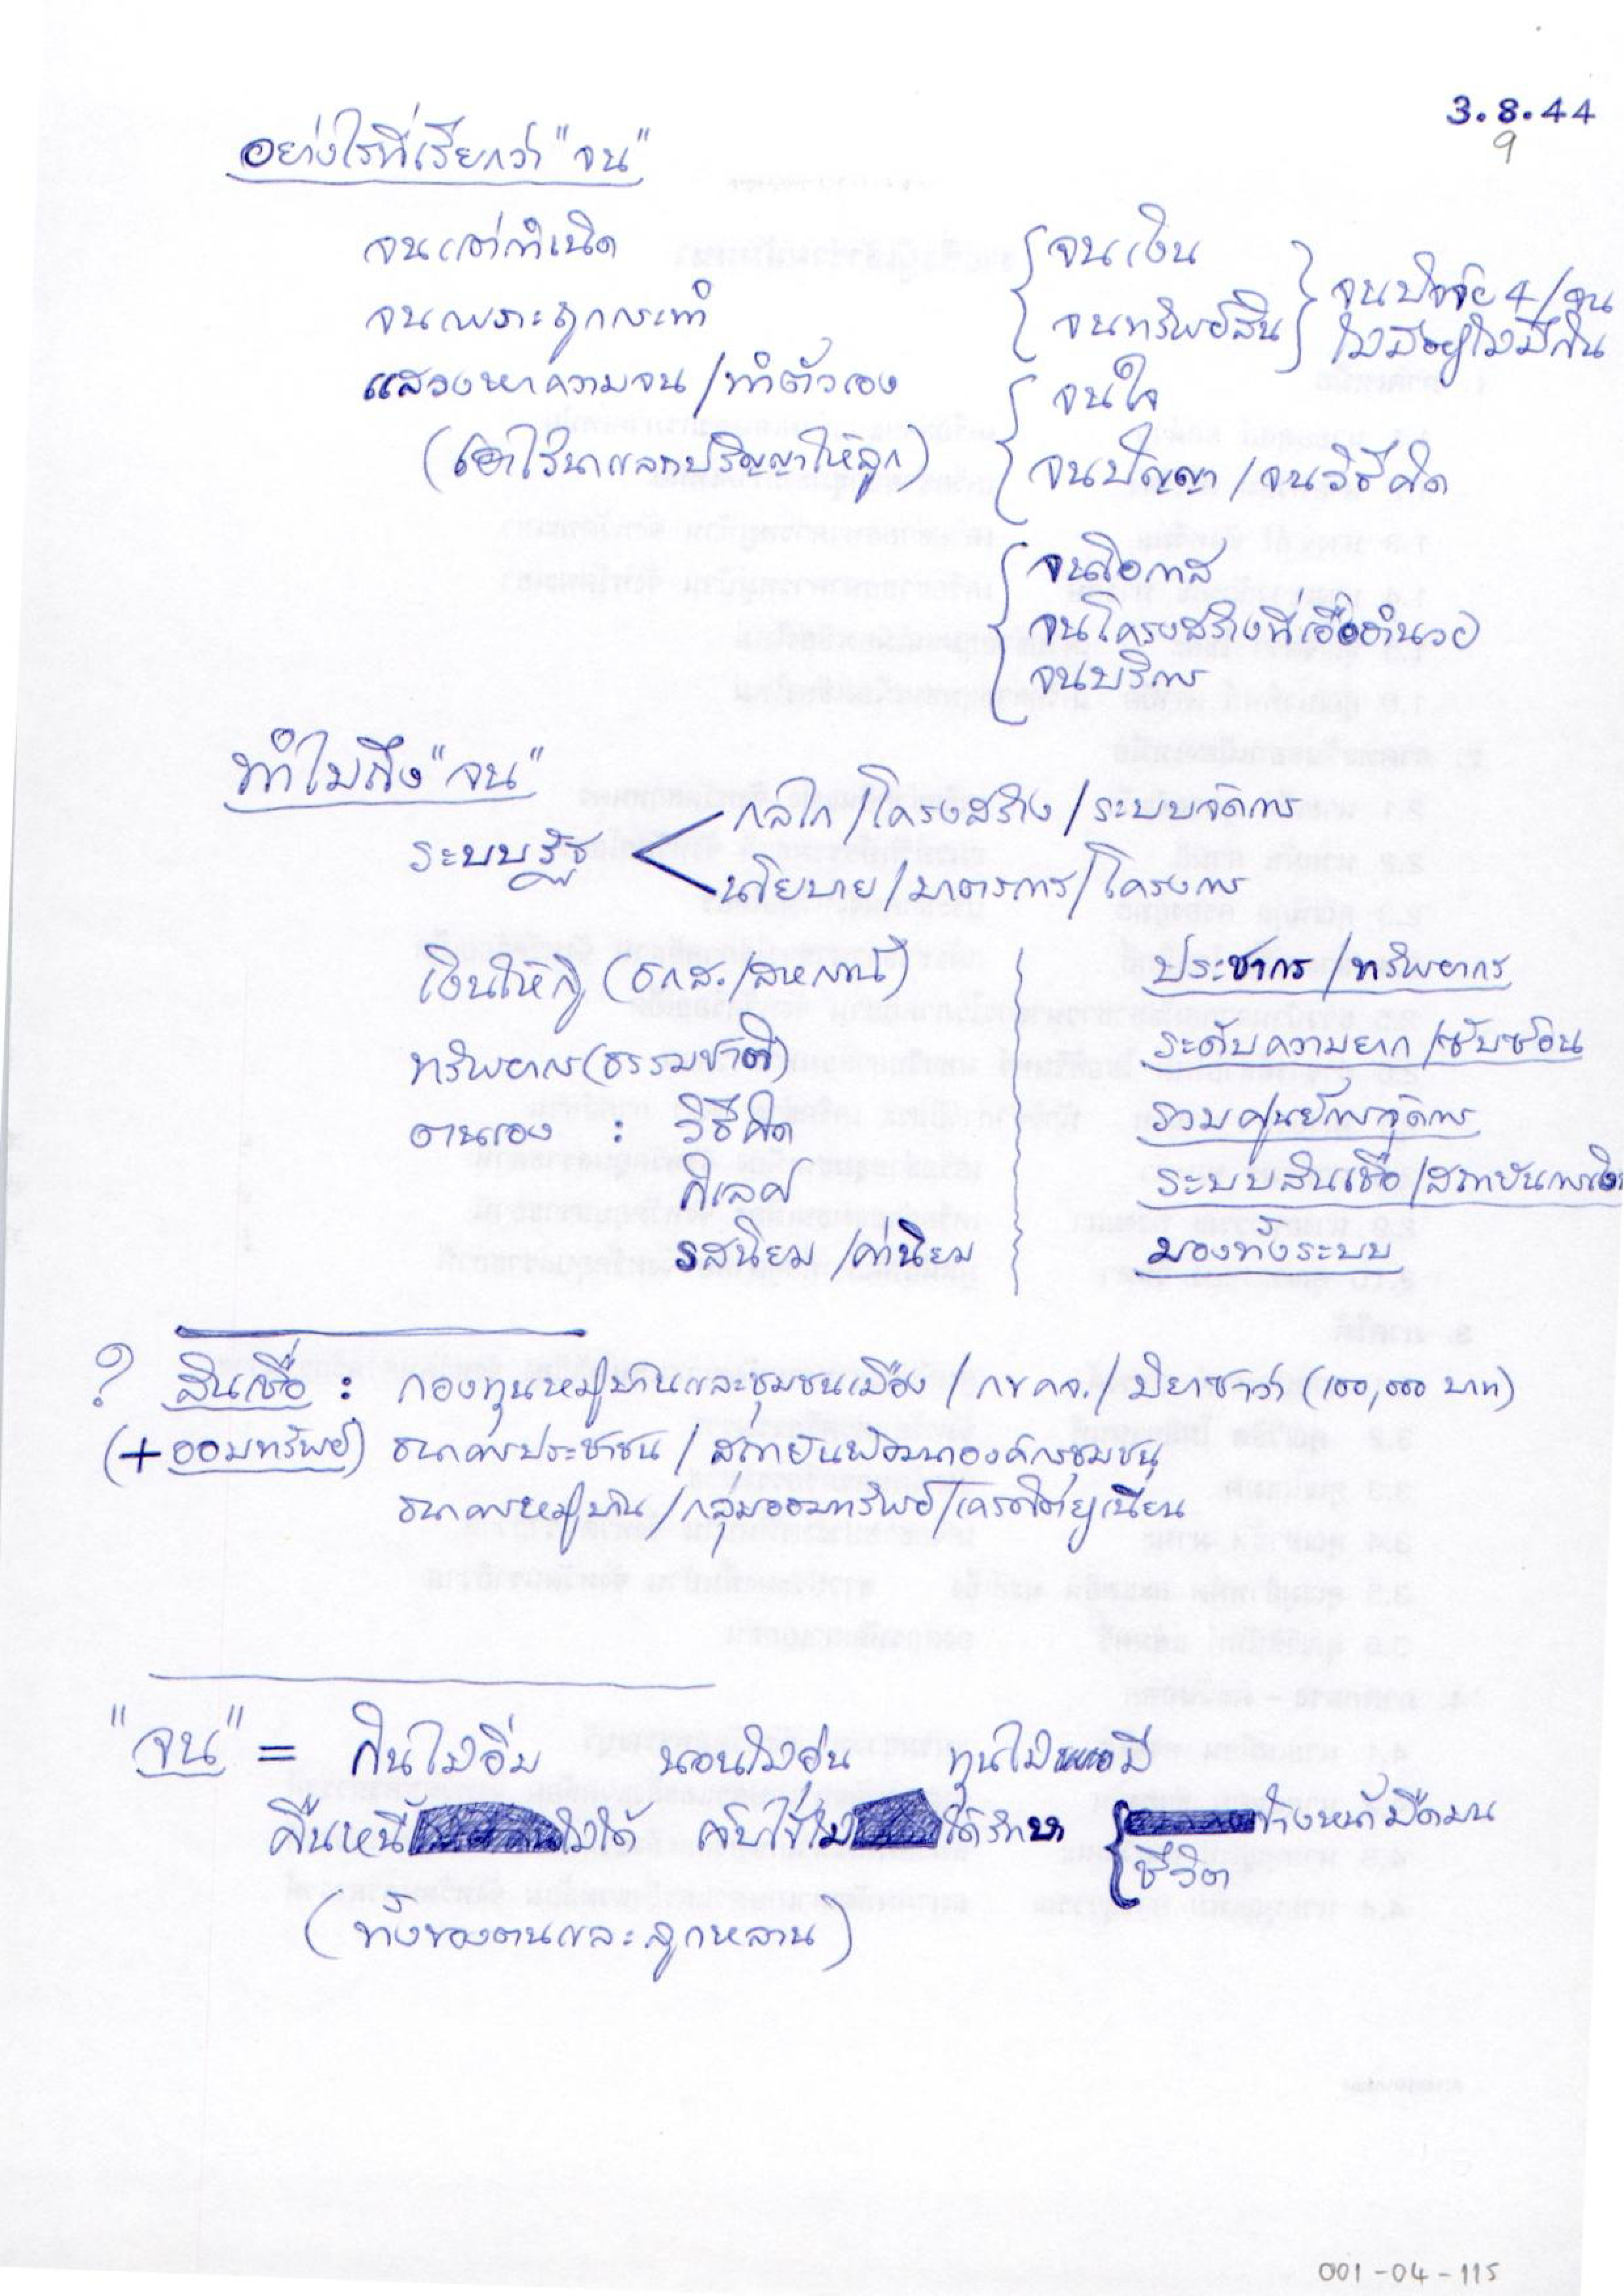 3.8.44
9
อย่างไรที่เรียกว่า "จน"
จนแต่กำเนิด
จนเพราะถูกกระทำ
แสวงหาความจน/ทำตัวเอง
(เอาไร่นาแลกปริญญาให้ลูก)
จนเงิน
จนทรัพย์สิน
จนปัจจัย 4/จน
ไม่มีอยู่ไม่มีกิน
จนใจ
จนปัญญา/จนวิธีคิด
จนโอกาส
จนโครงสร้างที่เอื้ออำนวย
จนบริการ
ทำไมถึง "จน"
ระบบรัฐ
กลไก/โครงสร้าง/ระบบจัดการ
นโยบาย/มาตรการ/โครงการ
เงินให้กู้ (ธกส./สหกรณ์)
ทรัพยากร(ธรรมชาติ)
ตนเอง : วิธีคิด
กิเลศ
รสนิยม/ค่านิยม
ประชากร/ทรัพยากร
ระดับความยาก/ซับซ้อน
รวมศูนย์การจัดการ
ระบบสินเชื่อ/สถาบันการเงิน
มองทั้งระบบ
? สินเชื่อ : กองทุนหมู่บ้านและชุมชนเมือง/กขคจ./มิยาซาว่า (100,000 บาท)
(+ออมทรัพย์) ธนาคารประชาชน/สถาบันพัฒนาองค์กรชุมชน
ธนาคารหมู่บ้าน/กลุ่มออมทรัพย์/เครดิตยูเนียน
"จน" = กินไม่อิ่ม นอนไม่อุ่น ทุนไม่มี
คืนหนี้ไม่ได้ เจ็บไข้ไม่ได้รักษา ข้างหน้ามืดมน
ชีวิต
(ทั้งของตนและลูกหลาน)
001-04-115